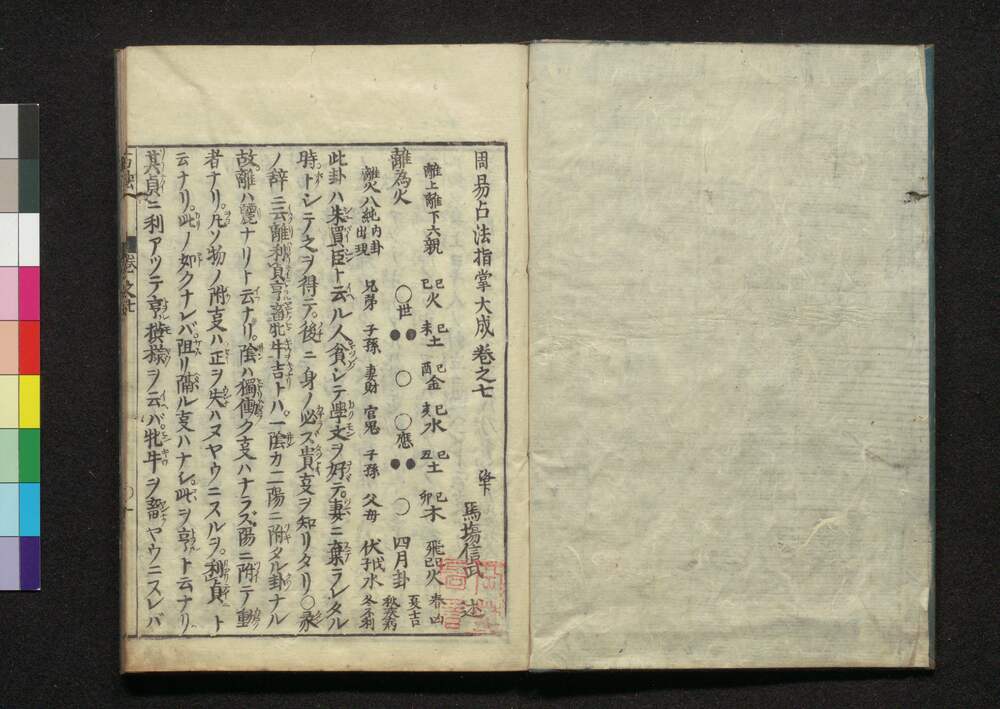 周易占法指掌大成巻之七
洛下 馬場信武 述
離上離下六親 巳火 未土 酉金 亥水 丑土 卯木 飛巳火 春凶 夏吉
離為火 ○世 ●● ○ ○應 ●● ○ 四月卦
離火八純内卦出現 兄弟 子孫 妻財 官鬼 子孫 父母 秋疾病 冬不利
此卦ハ朱買臣ト云ル人貧シテ學文ヲ好テ妻ニ棄ラレタル
時トシテ之ヲ得テ後ニ身ノ必ズ貴支ヲ知リタリ○彖
ノ辞ニ云離利貞亨畜牝牛吉トハ一陰カ二陽ニ附タル卦ナル
故離ハ麗ナリト云ナリ陰ハ獨働ク支ハナラズ陽ニ附テ動
者ナリ凡ソ物ノ附支ハ正ヲ失ハヌヤウニスルヲ利貞ト
云ナリ此ノ如クナレバ阻リ隔ル支ハナシ此ヲ亨ト云ナリ
其貞ニ利アツテ亨模様ヲ云バ牝牛ヲ畜ヤウニスレバ
巻之七